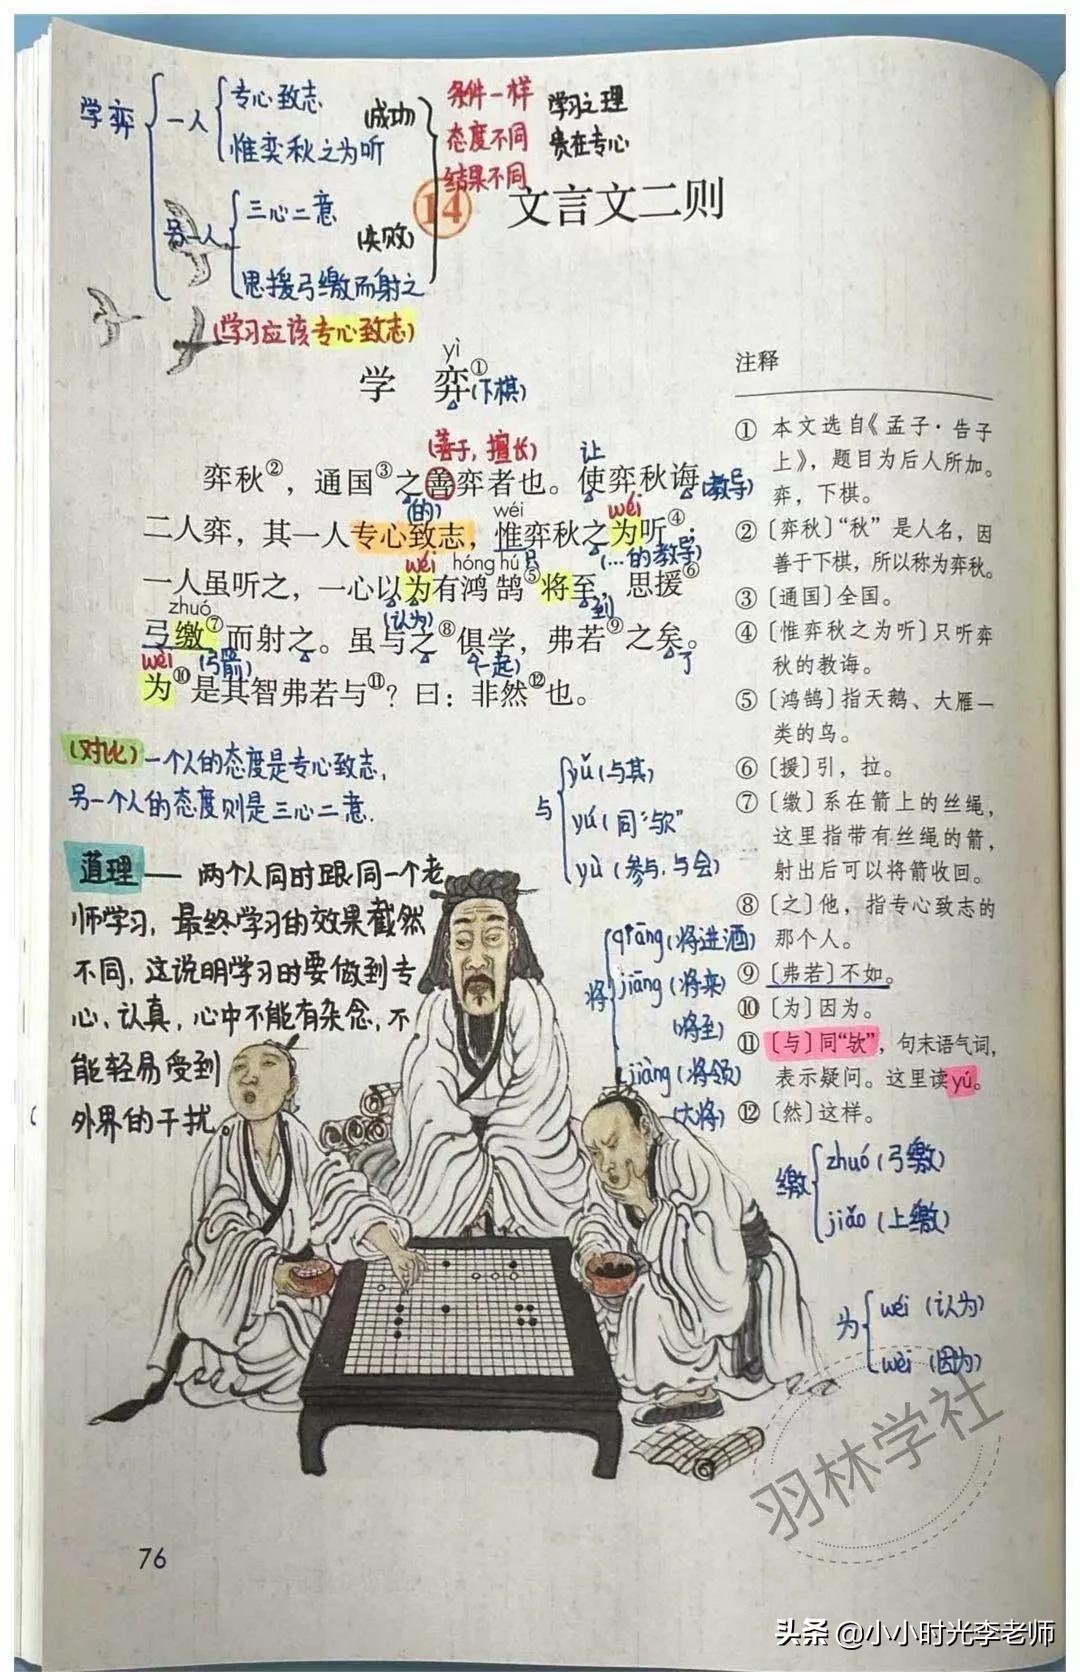 学弈
一人
专心致志
惟奕秋之为听
(成功)
另一人
三心二意
思援弓缴而射之
(失败)
条件一样
态度不同
结果不同
学习之理
贵在专心
(学习应该专心致志)
14 文言文二则
yì
学 弈①
(下棋)
(善于,擅长)
让
弈秋②，通国③之善弈者也。使弈秋诲
(的)
(教导)
wéi
wéi
二人弈，其一人专心致志，惟弈秋之为听④；
wéi
hóng hú
只
(…的教导)
一人虽听之，一心以为有鸿鹄⑤将至，思援⑥
zhuó
(认为)
到
弓缴⑦而射之。虽与之⑧俱学，弗若⑨之矣。
wèi
(弓箭)
(一起)
了
为⑩是其智弗若与⑪？曰：非然⑫也。
注释
① 本文选自《孟子·告子
上》，题目为后人所加。
弈，下棋。
② 〔弈秋〕“秋”是人名，因
善于下棋，所以称为弈秋。
③ 〔通国〕全国。
④ 〔惟弈秋之为听〕只听弈
秋的教诲。
⑤ 〔鸿鹄〕指天鹅、大雁一
类的鸟。
⑥ 〔援〕引，拉。
⑦ 〔缴〕系在箭上的丝绳，
这里指带有丝绳的箭，
射出后可以将箭收回。
⑧ 〔之〕他，指专心致志的
那个人。
⑨ 〔弗若〕不如。
⑩ 〔为〕因为。
⑪ 〔与〕同“欤”，句末语气词，
表示疑问。这里读yú。
⑫ 〔然〕这样。
(对比)一个人的态度是专心致志,
另一个人的态度则是三心二意.
道理——两个人同时跟同一个老
师学习，最终学习的效果截然
不同，这说明学习时要做到专
心、认真，心中不能有杂念，不
能轻易受到
外界的干扰。
与
yǔ (与其)
yú (同“欤”
yù (参与、与会)
将
qiāng (将进酒)
jiāng (将来)
(将至)
jiàng (将领)
(大将)
缴
zhuó (弓缴)
jiǎo (上缴)
为
wéi (认为)
wèi (因为)
羽林学社
76
头条 @小小时光李老师